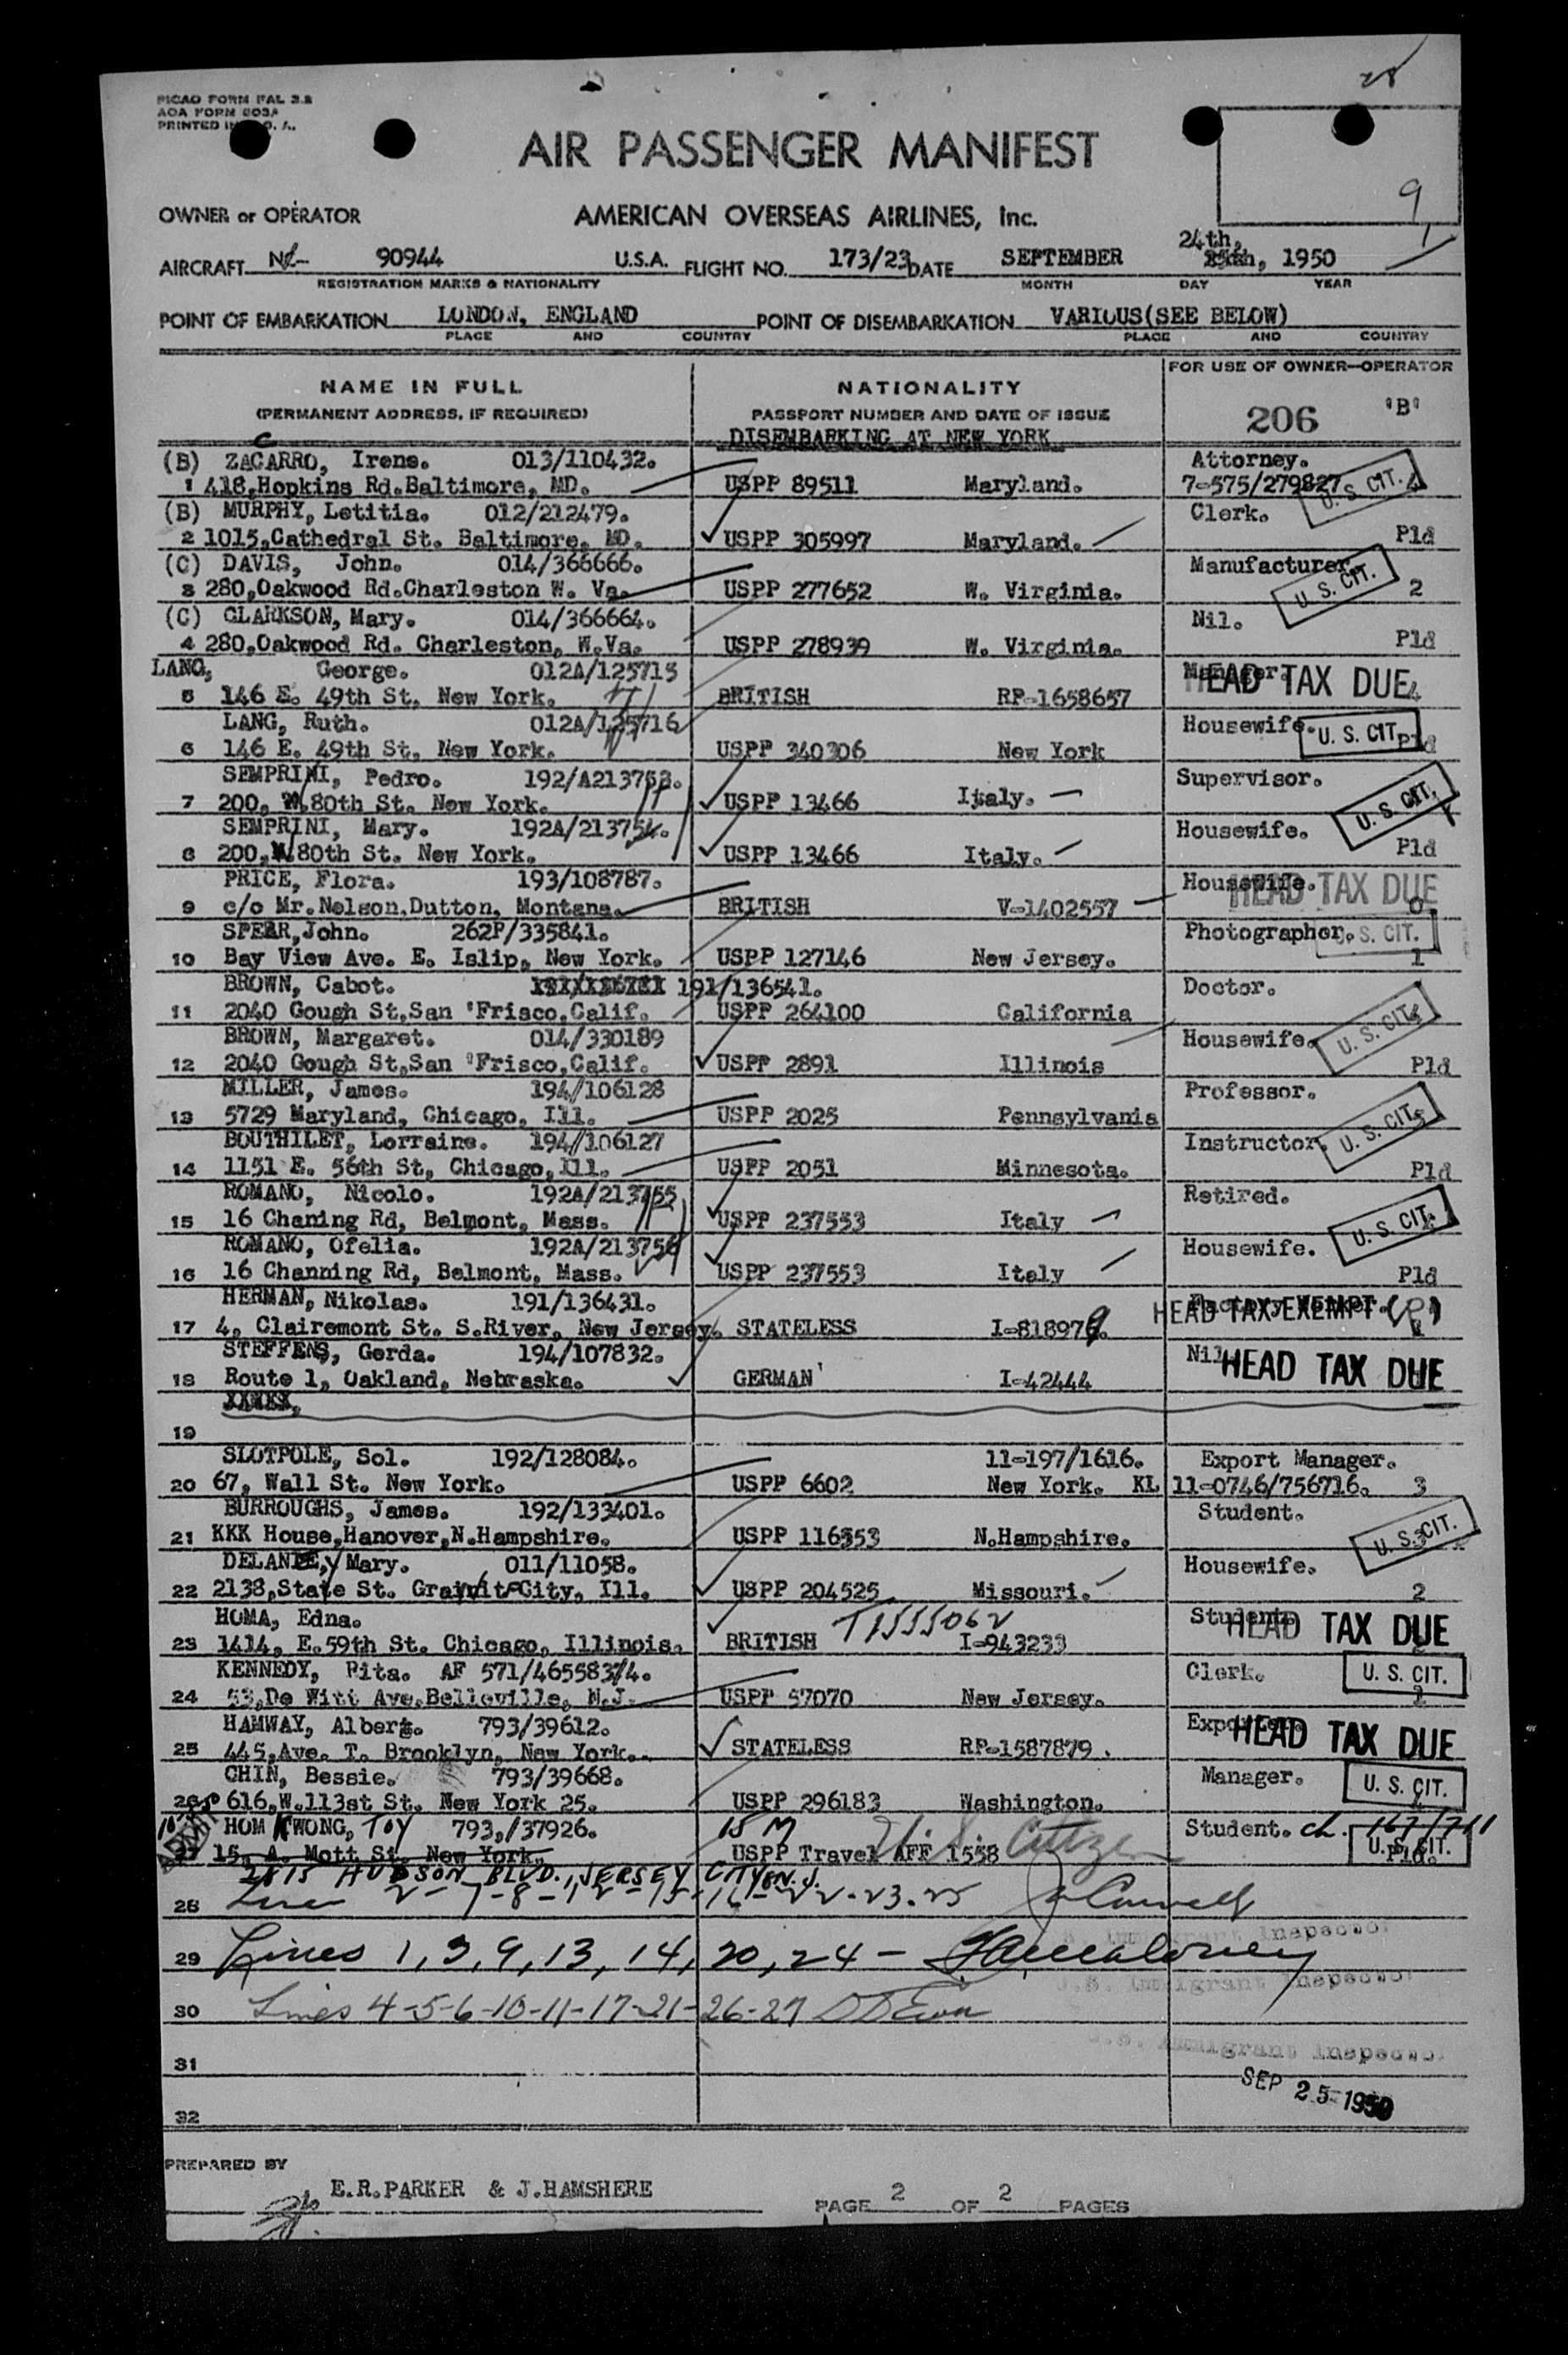 28
PICAO FORM FAL 2.2
AOA FORM 603A
PRINTED IN
AIR PASSENGER MANIFEST
9
OWNER or OPERATOR AMERICAN OVERSEAS AIRLINES, Inc.
24th,
AIRCRAFT 90944 U.S.A. FLIGHT NO. 173/23 DATE SEPTEMBER 1950
REGISTRATION MARKS & NATIONALITY MONTH DAY YEAR
POINT OF EMBARKATION LONDON, ENGLAND POINT OF DISEMBARKATION VARIOUS(SEE BELOW)
PLACE AND COUNTRY PLACE AND COUNTRY
FOR USE OF OWNER—OPERATOR
NAME IN FULL NATIONALITY
(PERMANENT ADDRESS, IF REQUIRED) PASSPORT NUMBER AND DATE OF ISSUE 206 'B'
DISEMBARKING AT NEW YORK
(B) ZACARRO, Irene. 013/110432. Attorney.
1 418,Hopkins Rd.Baltimore, MD. USPP 89511 Maryland. 7-575/279827 U. S. CIT.
(B) MURPHY, Letitia. 012/212479. Clerk.
2 1015,Cathedral St. Baltimore, MD. USPP 305997 Maryland. Pld
(C) DAVIS, John. 014/366666. Manufacturer.
3 280,Oakwood Rd.Charleston W. Va. USPP 277652 W. Virginia. U. S. CIT. 2
(C) CLARKSON, Mary. 014/366664. Nil.
4 280,Oakwood Rd. Charleston, W.Va. USPP 278939 W. Virginia. Pld
LANG, George. 012A/125715 Manager. HEAD TAX DUE
5 146 E. 49th St. New York. BRITISH RP-1658657
LANG, Ruth. 012A/125716 Housewife. U. S. CIT.
6 146 E. 49th St. New York. USPP 340306 New York Pld
SEMPRINI, Pedro. 192/A213753. Supervisor.
7 200, W.80th St. New York. USPP 13466 Italy. U. S. CIT.
SEMPRINI, Mary. 192A/213754. Housewife.
8 200,W.80th St. New York. USPP 13466 Italy. Pld
PRICE, Flora. 193/108787. Housewife. HEAD TAX DUE
9 c/o Mr.Nelson,Dutton, Montana. BRITISH V-1402557 0
SPEAR,John. 262P/335841. Photographer. U. S. CIT.
10 Bay View Ave. E. Islip, New York. USPP 127146 New Jersey. 1
BROWN, Cabot. 191/136541. Doctor.
11 2040 Gough St,San 'Frisco,Calif. USPP 264100 California U. S. CIT.
BROWN, Margaret. 014/330189 Housewife.
12 2040 Gough St,San 'Frisco,Calif. USPP 2891 Illinois Pld
MILLER, James. 194/106128 Professor.
13 5729 Maryland, Chicago, Ill. USPP 2025 Pennsylvania U. S. CIT.
BOUTHILET, Lorraine. 194/106127 Instructor.
14 1151 E. 56th St, Chicago,Ill. USPP 2051 Minnesota. Pld
ROMANO, Nicolo. 192A/213755 Retired.
15 16 Chaning Rd, Belmont, Mass. USPP 237553 Italy U. S. CIT.
ROMANO, Ofelia. 192A/213756 Housewife.
16 16 Channing Rd, Belmont, Mass. USPP 237553 Italy Pld
HERMAN, Nikolas. 191/136431. HEAD TAX EXEMPT
17 4, Clairemont St. S.River, New Jersey. STATELESS I-818979.
STEFFENS, Gerda. 194/107832. Nil HEAD TAX DUE
18 Route 1, Oakland, Nebraska. GERMAN I-42444
19
SLOTPOLE, Sol. 192/128084. 11-197/1616. Export Manager.
20 67, Wall St. New York. USPP 6602 New York. KL 11-0746/756716. 3
BURROUGHS, James. 192/133401. Student.
21 KKK House,Hanover,N.Hampshire. USPP 116553 N.Hampshire. U. S. CIT.
DELANEY, Mary. 011/11058. Housewife.
22 2138,State St. Granite City, Ill. USPP 204525 Missouri. 2
HOMA, Edna. T1555062 Student. HEAD TAX DUE
23 1414, E.59th St. Chicago, Illinois. BRITISH I-943233
KENNEDY, Rita. AF 571/465583/4. Clerk. U. S. CIT.
24 53,De Witt Ave,Belleville, N.J. USPP 57070 New Jersey.
HAMWAY, Albert. 793/39612. HEAD TAX DUE
25 445,Ave. T. Brooklyn, New York. STATELESS RP-1587879.
CHIN, Bessie. 793/39668. Manager. U. S. CIT.
26 616,W.113st St. New York 25. USPP 296183 Washington.
HOM KWONG, TOY 793,/37926. 15 M U.S. Citizen Student. ch. 167/711
27 15, A. Mott St. New York. USPP Travel AFF 1558 U. S. CIT. Pld.
2815 HUDSON BLVD., JERSEY CITY, N.J.
28 Lines 2-7-8-12-15-16-22-23-25
U.S. Immigrant Inspector
29 Lines 1,3,9,13,14,20,24 -
U.S. Immigrant Inspector
30 Lines 4-5-6-10-11-17-21-26-27
U.S. Immigrant Inspector
31
SEP 25 1950
32
PREPARED BY
E.R.PARKER & J.HAMSHERE
PAGE 2 OF 2 PAGES